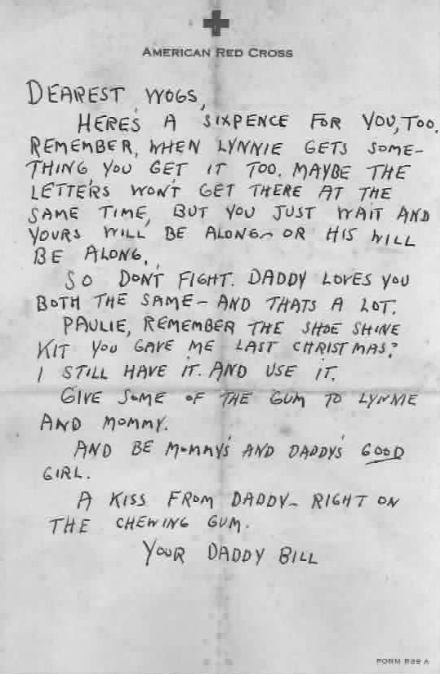 AMERICAN RED CROSS
DEAREST WOGS,
HERE'S A SIXPENCE FOR YOU, TOO.
REMEMBER, WHEN LYNNIE GETS SOME-
THING YOU GET IT TOO. MAYBE THE
LETTERS WON'T GET THERE AT THE
SAME TIME, BUT YOU JUST WAIT AND
YOURS WILL BE ALONG - OR HIS WILL
BE ALONG.
SO DON'T FIGHT. DADDY LOVES YOU
BOTH THE SAME - AND THATS A LOT.
PAULIE, REMEMBER THE SHOE SHINE
KIT YOU GAVE ME LAST CHRISTMAS?
I STILL HAVE IT. AND USE IT.
GIVE SOME OF THE GUM TO LYNNIE
AND MOMMY.
AND BE MOMMY'S AND DADDY'S GOOD
GIRL.
A KISS FROM DADDY - RIGHT ON
THE CHEWING GUM.
YOUR DADDY BILL
FORM 539 A